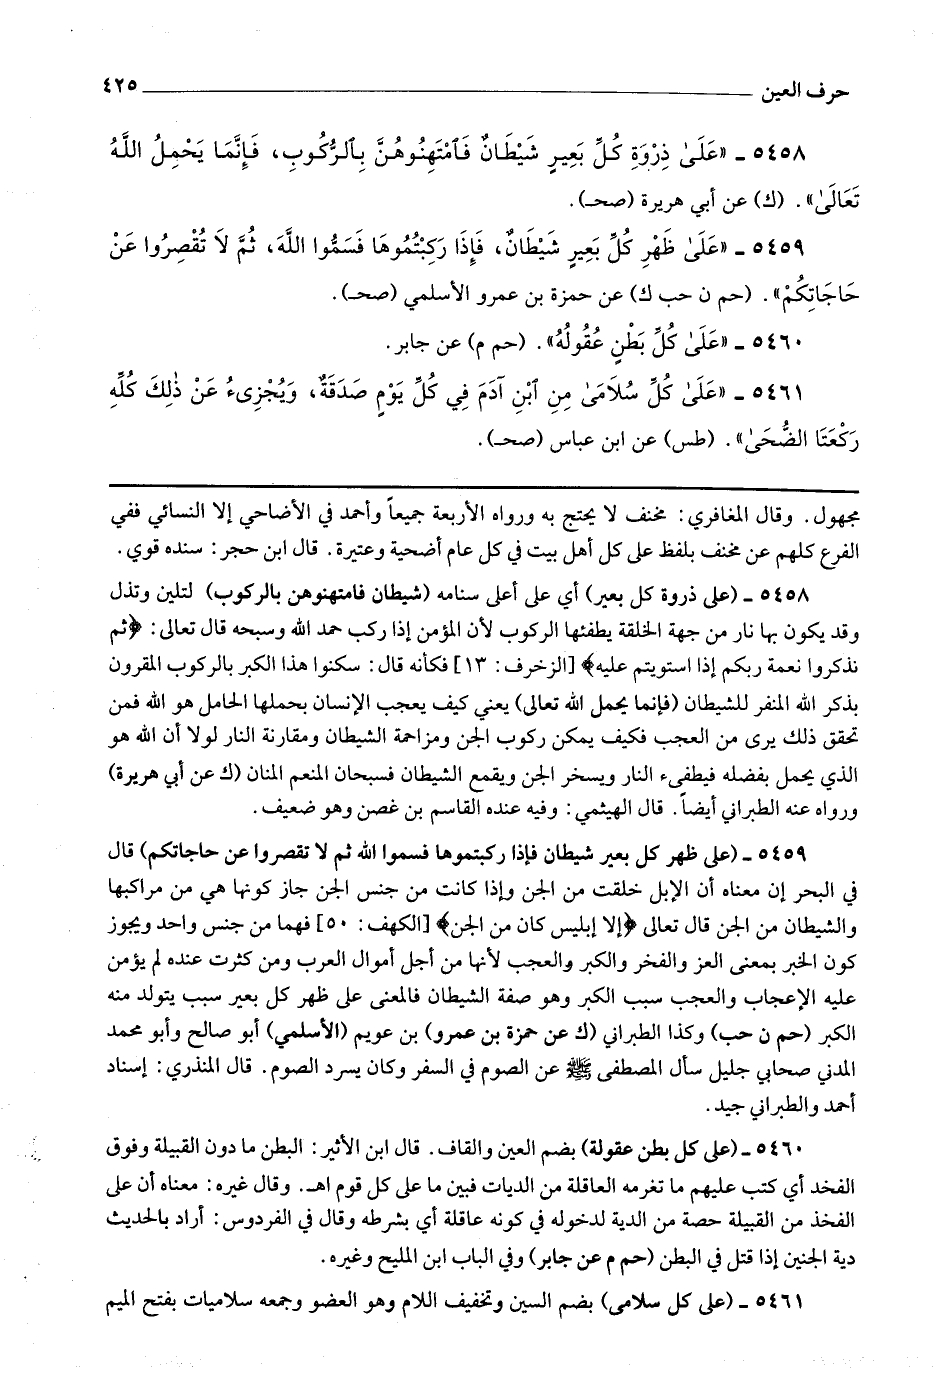 حرف العين ٤٢٥
٥٤٥٨ ـ «عَلَىٰ ذِرْوَةِ كُلِّ بَعِيرٍ شَيْطَانٌ فَٱمْتَهِنُوهُنَّ بِٱلرُّكُوبِ، فَإِنَّمَا يَحْمِلُ اللَّهُ
تَعَالَىٰ». (ك) عن أبي هريرة (صحـ).
٥٤٥٩ ـ «عَلَىٰ ظَهْرِ كُلِّ بَعِيرٍ شَيْطَانٌ، فَإِذَا رَكِبْتُمُوهَا فَسَمُّوا اللَّهَ، ثُمَّ لَا تُقْصِرُوا عَنْ
حَاجَاتِكُمْ». (حم ن حب ك) عن حمزة بن عمرو الأسلمي (صحـ).
٥٤٦٠ ـ «عَلَىٰ كُلِّ بَطْنٍ عُقُولُهُ». (حم م) عن جابر.
٥٤٦١ ـ «عَلَىٰ كُلِّ سُلَامَىٰ مِنِ ٱبْنِ آدَمَ فِي كُلِّ يَوْمٍ صَدَقَةٌ، وَيُجْزِىءُ عَنْ ذٰلِكَ كُلِّهِ
رَكْعَتَا الضُّحَىٰ». (طس) عن ابن عباس (صحـ).
مجهول. وقال المغافري: مخنف لا يحتج به ورواه الأربعة جميعاً وأحمد في الأضاحي إلا النسائي ففي
الفرع كلهم عن مخنف بلفظ على كل أهل بيت في كل عام أضحية وعتيرة. قال ابن حجر: سنده قوي.
٥٤٥٨ ـ (على ذروة كل بعير) أي على أعلى سنامه (شيطان فامتهنوهن بالركوب) لتلين وتذل
وقد يكون بها نار من جهة الخلقة يطفئها الركوب لأن المؤمن إذا ركب حمد الله وسبحه قال تعالى: ﴿ثم
تذكروا نعمة ربكم إذا استويتم عليه﴾ [الزخرف: ١٣] فكأنه قال: سكنوا هذا الكبر بالركوب المقرون
بذكر الله المنفر للشيطان (فإنما يحمل الله تعالى) يعني كيف يعجب الإنسان بحملها الحامل هو الله فمن
تحقق ذلك يرى من العجب فكيف يمكن ركوب الجن ومزاحمة الشيطان ومقارنة النار لولا أن الله هو
الذي يحمل بفضله فيطفىء النار ويسخر الجن ويقمع الشيطان فسبحان المنعم المنان (ك عن أبي هريرة)
ورواه عنه الطبراني أيضاً. قال الهيثمي: وفيه عنده القاسم بن غصن وهو ضعيف.
٥٤٥٩ ـ (على ظهر كل بعير شيطان فإذا ركبتموها فسموا الله ثم لا تقصروا عن حاجاتكم) قال
في البحر إن معناه أن الإبل خلقت من الجن وإذا كانت من جنس الجن جاز كونها هي من مراكبها
والشيطان من الجن قال تعالى ﴿إلا إبليس كان من الجن﴾ [الكهف: ٥٠] فهما من جنس واحد ويجوز
كون الخبر بمعنى العز والفخر والكبر والعجب لأنها من أجل أموال العرب ومن كثرت عنده لم يؤمن
عليه الإعجاب والعجب سبب الكبر وهو صفة الشيطان فالمعنى على ظهر كل بعير سبب يتولد منه
الكبر (حم ن حب) وكذا الطبراني (ك عن حمزة بن عمرو) بن عويم (الأسلمي) أبو صالح وأبو محمد
المدني صحابي جليل سأل المصطفى ﷺ عن الصوم في السفر وكان يسرد الصوم. قال المنذري: إسناد
أحمد والطبراني جيد.
٥٤٦٠ ـ (على كل بطن عقولة) بضم العين والقاف. قال ابن الأثير: البطن ما دون القبيلة وفوق
الفخد أي كتب عليهم ما تغرمه العاقلة من الديات فبين ما على كل قوم اهـ. وقال غيره: معناه أن على
الفخذ من القبيلة حصة من الدية لدخوله في كونه عاقلة أي بشرطه وقال في الفردوس: أراد بالحديث
دية الجنين إذا قتل في البطن (حم م عن جابر) وفي الباب ابن المليح وغيره.
٥٤٦١ ـ (على كل سلامى) بضم السين وتخفيف اللام وهو العضو وجمعه سلاميات بفتح الميم